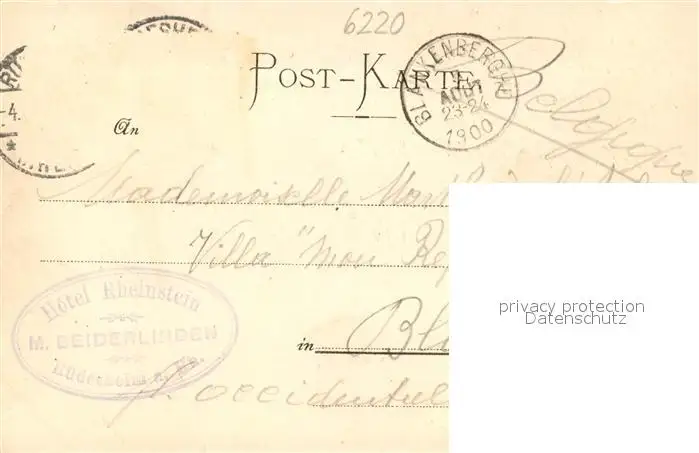 6220
POST-KARTE
BLANKENBERGHE
AOUT
23-24
1900
Belgique
An
Mademoiselle
Villa "Mon
in Bl
Hôtel Rheinstein
M. BEIDERLINDEN
Rüdesheim a. Rh.
occidentale
privacy protection
Datenschutz